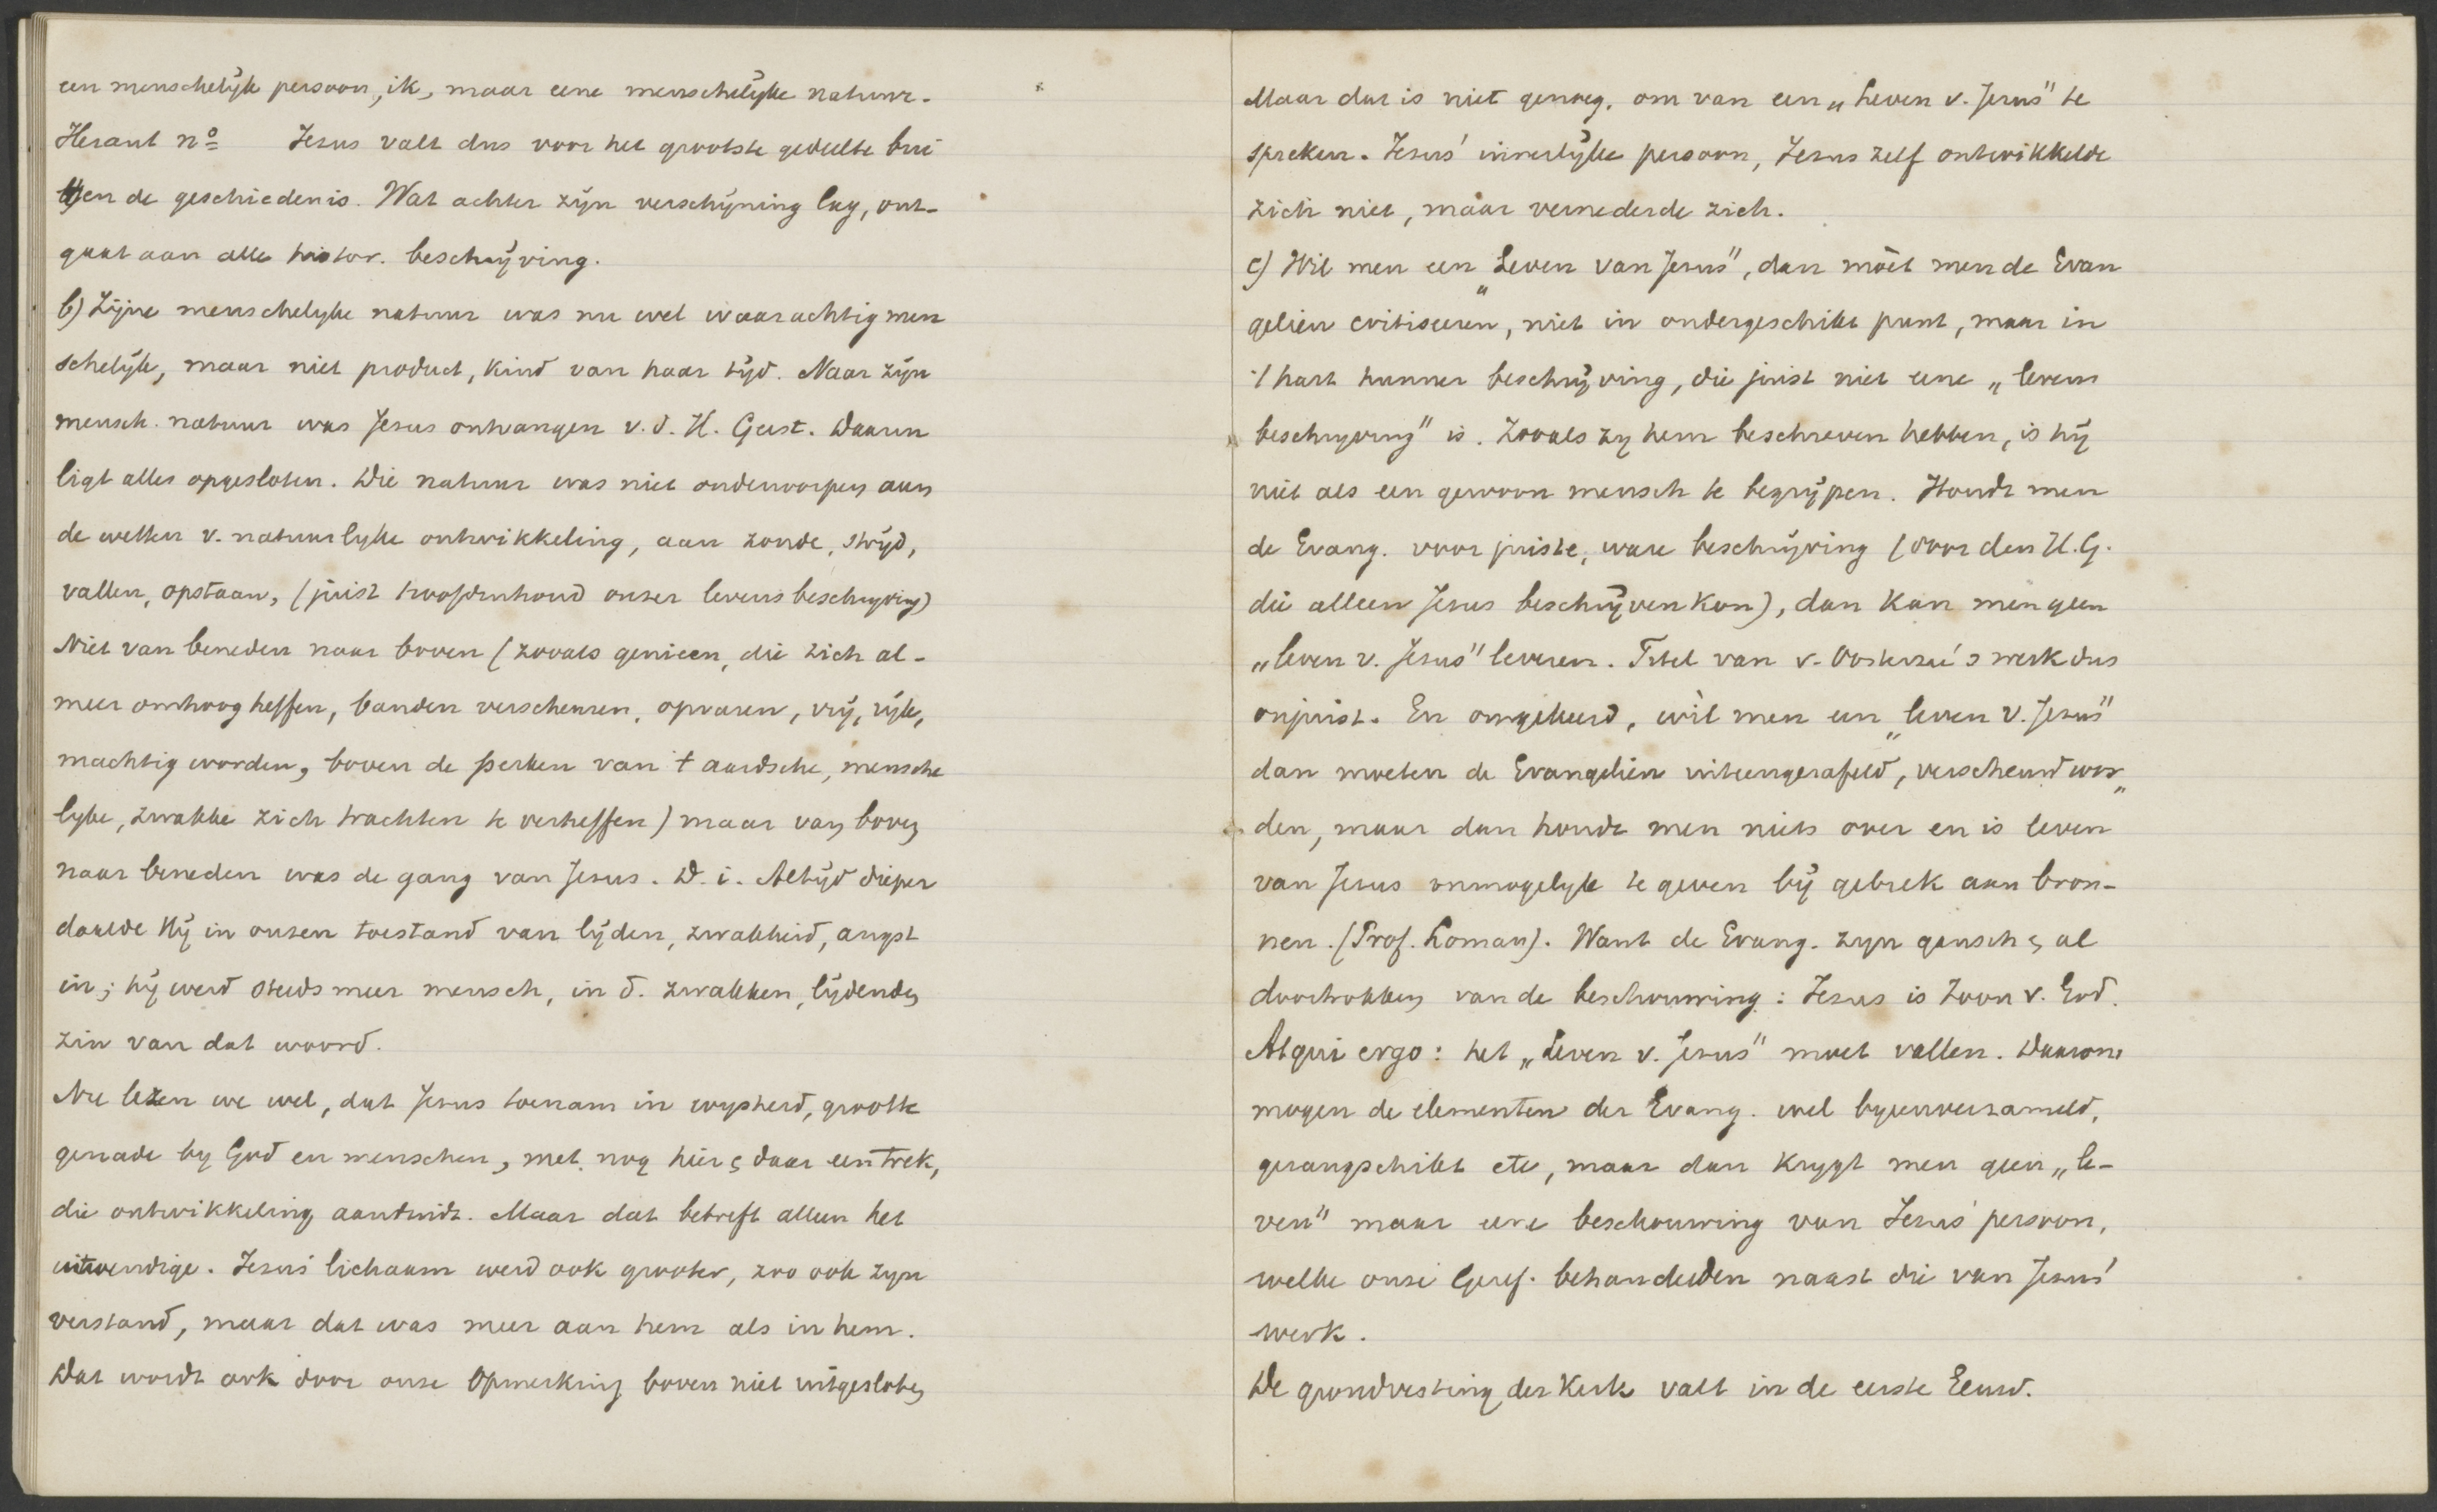 een menschelijk persoon, ik, maar eene menschelijke natuur.
Heraut no Jesus valt dus voor het grootste gedeelte bui
ten de geschiedenis. Wat achter zijn verschijning lag, ont-
gaat aan alle histor. beschrijving.
b) Zijne menschelyke natuur was nu wel waarachtig men
schelijk, maar niet product, kind van haar tijd. Naar zijn
mensch. natuur was Jesus ontvangen v. d. H. Geest. Daarin
ligt alles opgesloten. Die natuur was niet onderworpen aan
de wetten v. natuurlyke ontwikkeling, aan zonde, strijd,
vallen, opstaan, (juist hoofdinhoud onzer levensbeschryving)
Niet van beneden naar boven (zooals genieen, die zich al-
meer omhoog heffen, banden verscheuren, opvaren, vrij, rijk,
machtig worden, boven de perken van 't aardsche, mensche
lyke, zwakke zich trachten te verheffen) maar van boven
naar beneden was de gang van Jesus. D. i. Altijd dieper
daalde Hij in onzen toestand van lijden, zwakheid, angst
in; hij werd steeds meer mensch, in d. zwakken, lijdenden
zin van dat woord.
Nu lezen we wel, dat Jesus toenam in wysheid, grootte
genade by God en menschen, met nog hier & daar een trek,
die ontwikkeling aanduidt. Maar dat betreft alleen het
uitwendige. Jesus' lichaam werd ook grooter, zoo ook zyn
verstand, maar dat was meer aan hem als in hem.
Dat wordt ook door onze Opmerking boven niet uitgesloten
Maar dat is niet genoeg, om van een „Leven v. Jesus" te
spreken. Jesus' innerlijke persoon, Jesus zelf ontwikkelde
zich niet, maar vernederde zich.
c) Wil men een „Leven van Jesus", dan mòet men de Evan
geliën critiseeren, niet in ondergeschikt punt, maar in
't hart hunner beschrijving, die juist niet eene „levens
beschryving" is. Zooals zy hem beschreven hebben, is hij
niet als een gewoon mensch te begrijpen. Houdt men
de Evang. voor juiste, ware beschrijving (door den H.G.
die alleen Jesus beschrijven kon), dan kan men geen
„leven v. Jesus" leveren. Titel van v. Oosterzee's werk dus
onjuist. En omgekeerd, wìl men een „leven v. Jesus"
dan moeten de Evangeliën uiteengerafeld, verscheurd wor„
den, maar dan houdt men niets over en is leven
van Jesus onmogelyk te geven bij gebrek aan bron-
nen. (Prof. Loman). Want de Evang. zyn gansch & al
doortrokken van de beschouwing: Jesus is Zoon v. God.
Atqui ergo: het „Leven v. Jesus" moet vallen. Daarom
mogen de elementen der Evang. wel byeenverzameld,
gerangschikt etc, maar dan krygt men geen „le-
ven" maar eene beschouwing van Jesus' persoon,
welke onze Geref. behandelden naast die van Jesus'
werk.
De grondvesting der Kerk valt in de eerste Eeuw.